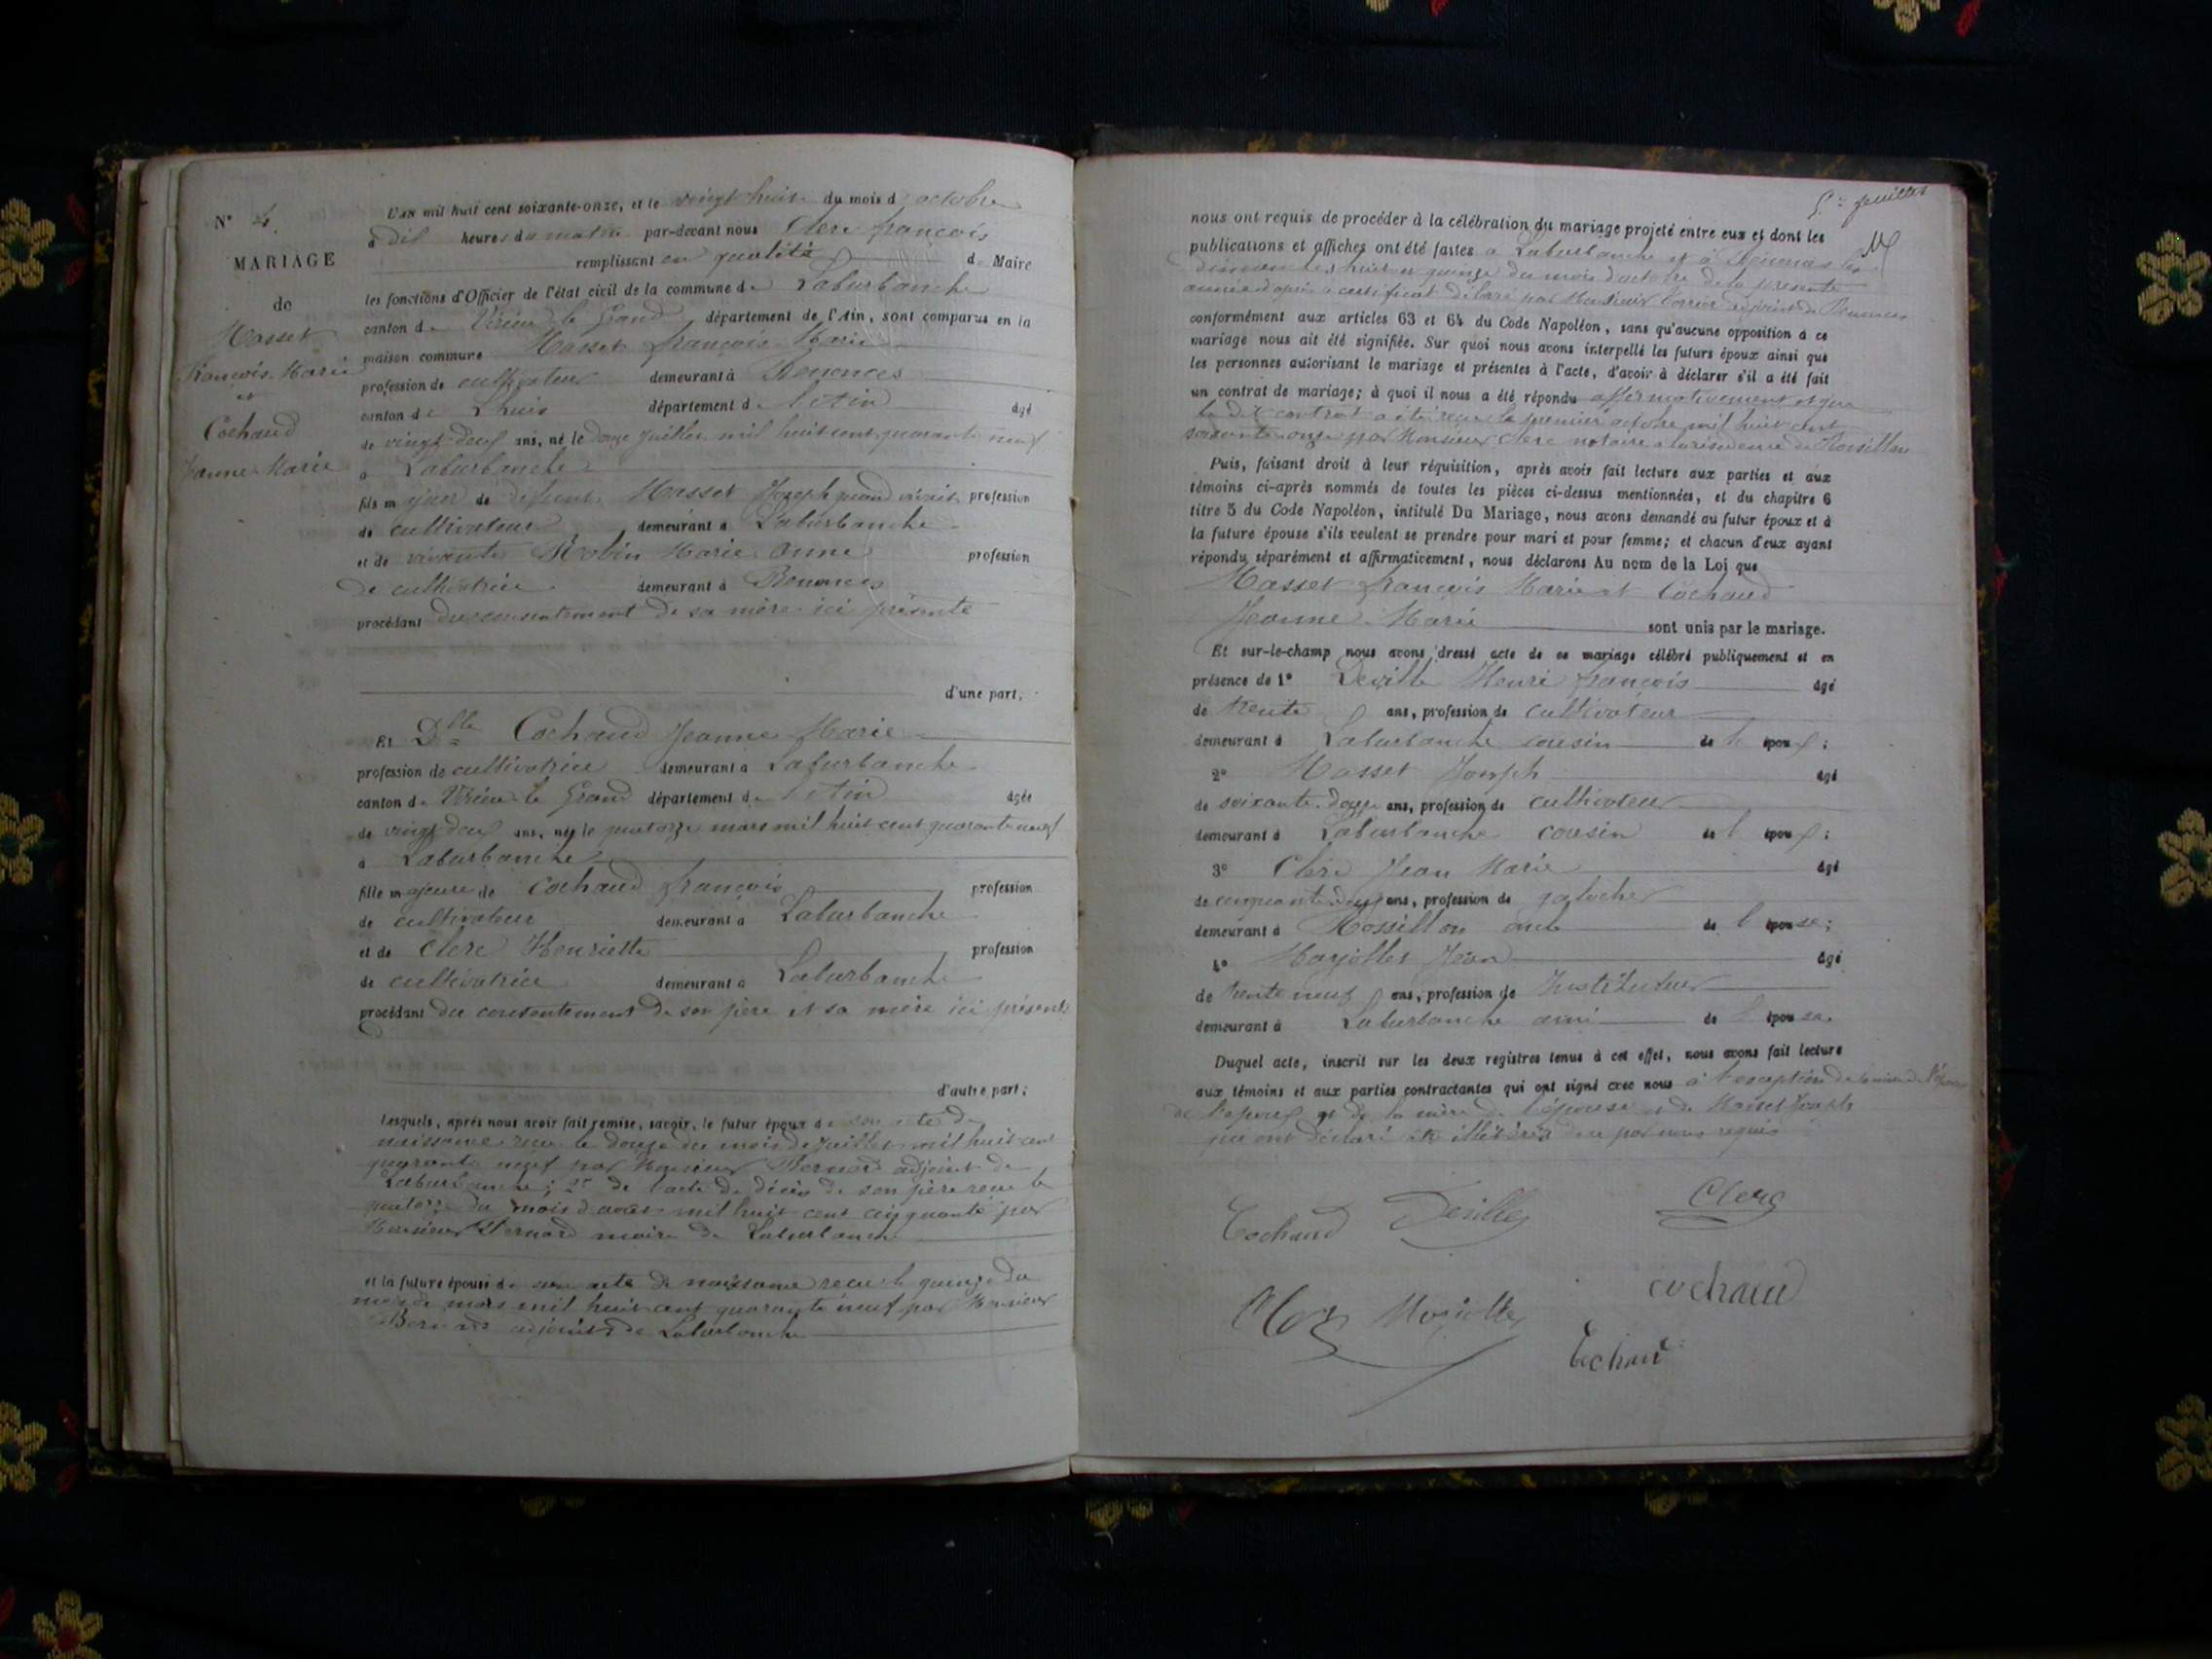 N° 4.
MARIAGE
de
Masset
François-Marie
et
Cochaud
Jeanne Marie
L'an mil huit cent soixante-onze, et le vingt huit du mois d'octobre
à dix heures du matin par-devant nous Clerc françois
remplissant en qualité de Maire
les fonctions d'Officier de l'état civil de la commune de Laburbanche
canton de Virieu le Grand département de l'Ain, sont comparus en la
maison commune Masset françois-Marie
profession de cultivateur demeurant à Benonces
canton de Lhuis département de l'Ain âgé
de vingt-deux ans, né le douze juillet mil huit cent quarante neuf
à Laburbanche
fils majeur de défunt Masset Joseph quand vivait profession
de cultivateur demeurant à Laburbanche
et de vivante Robin Marie Anne profession
de cultivatrice demeurant à Benonces
procédant du consentement de sa mère ici présente
d'une part,
Et Dlle Cochaud Jeanne-Marie
profession de cultivatrice demeurant à Laburbanche
canton de Virieu-le Grand département de l'Ain âgée
de vingt deux ans, née le quatorze mars mil huit cent quarante neuf
à Laburbanche
fille majeure de Cochaud françois profession
de cultivateur demeurant à Laburbanche
et de Clerc Henriette profession
de cultivatrice demeurant à Laburbanche
procédant du consentement de son père et sa mère ici présents
d'autre part;
Lesquels, après nous avoir fait remise, savoir, le futur époux de son acte de
naissance reçu le douze du mois de juillet mil huit cent
quarante neuf par Monsieur Bernard adjoint de
Laburbanche; 2° de l'acte de décès de son père reçu le
quatorze du mois d'août mil huit cent cinquante par
Monsieur Bernard maire de Laburbanche
et la future épouse de son acte de naissance reçu le quinze du
mois de mars mil huit cent quarante neuf par Monsieur
Bernard adjoint de Laburbanche
5e feuillet
nous ont requis de procéder à la célébration du mariage projeté entre eux et dont les
publications et affiches ont été faites à Laburbanche et à Benonces les
dimanches huit et quinze du mois d'octobre de la présente
année d'après le certificat délivré par Monsieur adjoint de Benonces
conformément aux articles 63 et 64 du Code Napoléon, sans qu'aucune opposition à ce
mariage nous ait été signifiée. Sur quoi nous avons interpellé les futurs époux ainsi que
les personnes autorisant le mariage et présentes à l'acte, d'avoir à déclarer s'il a été fait
un contrat de mariage; à quoi il nous a été répondu affirmativement et que
le dit contrat a été reçu le premier octobre mil huit cent
soixante onze par Monsieur Clerc notaire à la résidence de Rossillon
Puis, faisant droit à leur réquisition, après avoir fait lecture aux parties et aux
témoins ci-après nommés de toutes les pièces ci-dessus mentionnées, et du chapitre 6
titre 5 du Code Napoléon, intitulé Du Mariage, nous avons demandé au futur époux et à
la future épouse s'ils veulent se prendre pour mari et pour femme; et chacun d'eux ayant
répondu séparément et affirmativement, nous déclarons Au nom de la Loi que
Masset françois Marie et Cochaud
Jeanne-Marie sont unis par le mariage.
Et sur-le-champ nous avons dressé acte de ce mariage célébré publiquement et en
présence de 1° Deville Henri françois âgé
de trente ans, profession de cultivateur
demeurant à Laburbanche cousin de l'époux;
2° Masset Joseph âgé
de soixante-douze ans, profession de cultivateur
demeurant à Laburbanche cousin de l'époux;
3° Clerc Jean Marie âgé
de cinquante deux ans, profession de galocher
demeurant à Rossillon oncle de l'épouse;
4° Mayolles Jean âgé
de trente neuf ans, profession de Instituteur
demeurant à Laburbanche ami de l'épouse.
Duquel acte, inscrit sur les deux registres tenus à cet effet, nous avons fait lecture
aux témoins et aux parties contractantes qui ont signé avec nous à l'exception de la mère de l'époux
de l'époux et de la mère de l'épouse et de Masset Joseph
qui ont déclaré être illétérés de ce par nous requis
Cochaud Deville Clerc
cochaud
Clerc
Cochaud